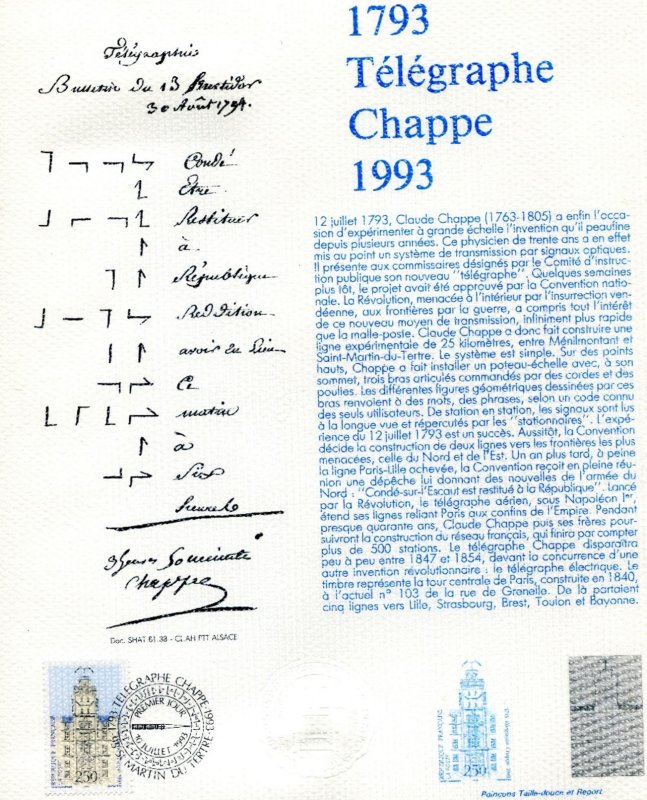 1793
Télégraphe
Chappe
1993
Télégraphie
Bulletin du 13 fructidor
30 Août 1794.
Condé
Être
Restituer
à
République
Reddition
avoir eu lieu
Ce
matin
à
Six
3 heures Soixante
Chappe
Doc. SHAT 61.38 - CL AH PTT ALSACE
12 juillet 1793, Claude Chappe (1763-1805) a enfin l'occa-
sion d'expérimenter à grande échelle l'invention qu'il peaufine
depuis plusieurs années. Ce physicien de trente ans a en effet
mis au point un système de transmission par signaux optiques.
Il présente aux commissaires désignés par le Comité d'instruc-
tion publique son nouveau "télégraphe". Quelques semaines
plus tôt, le projet avait été approuvé par la Convention natio-
nale. La Révolution, menacée à l'intérieur par l'insurrection ven-
déenne, aux frontières par la guerre, a compris tout l'intérêt
de ce nouveau moyen de transmission, infiniment plus rapide
que la malle-poste. Claude Chappe a donc fait construire une
ligne expérimentale de 25 kilomètres, entre Ménilmontant et
Saint-Martin-du-Tertre. Le système est simple. Sur des points
hauts, Chappe a fait installer un poteau-échelle avec, à son
sommet, trois bras articulés commandés par des cordes et des
poulies. Les différentes figures géométriques dessinées par ces
bras renvoient à des mots, des phrases, selon un code connu
des seuls utilisateurs. De station en station, les signaux sont lus
à la longue vue et répercutés par les "stationnaires". L'expé-
rience du 12 juillet 1793 est un succès. Aussitôt, la Convention
décide la construction de deux lignes vers les frontières les plus
menacées, celle du Nord et de l'Est. Un an plus tard, à peine
la ligne Paris-Lille achevée, la Convention reçoit en pleine réu-
nion une dépêche lui donnant des nouvelles de l'armée du
Nord : "Condé-sur-l'Escaut est restitué à la République". Lancé
par la Révolution, le télégraphe aérien, sous Napoléon Ier,
étend ses lignes reliant Paris aux confins de l'Empire. Pendant
presque quarante ans, Claude Chappe puis ses frères pour-
suivront la construction du réseau français, qui finira par compter
plus de 500 stations. Le télégraphe Chappe disparaîtra
peu à peu entre 1847 et 1854, devant la concurrence d'une
autre invention révolutionnaire : le télégraphe électrique. Le
timbre représente la tour centrale de Paris, construite en 1840,
à l'actuel n° 103 de la rue de Grenelle. De là partaient
cinq lignes vers Lille, Strasbourg, Brest, Toulon et Bayonne.
RÉPUBLIQUE FRANÇAISE
2,50
TELEGRAPHE CHAPPE 1993
PREMIER JOUR
JUILLET 1993
95 ST MARTIN DU TERTRE
RÉPUBLIQUE FRANÇAISE
2,50
Poinçons Taille-douce et Report